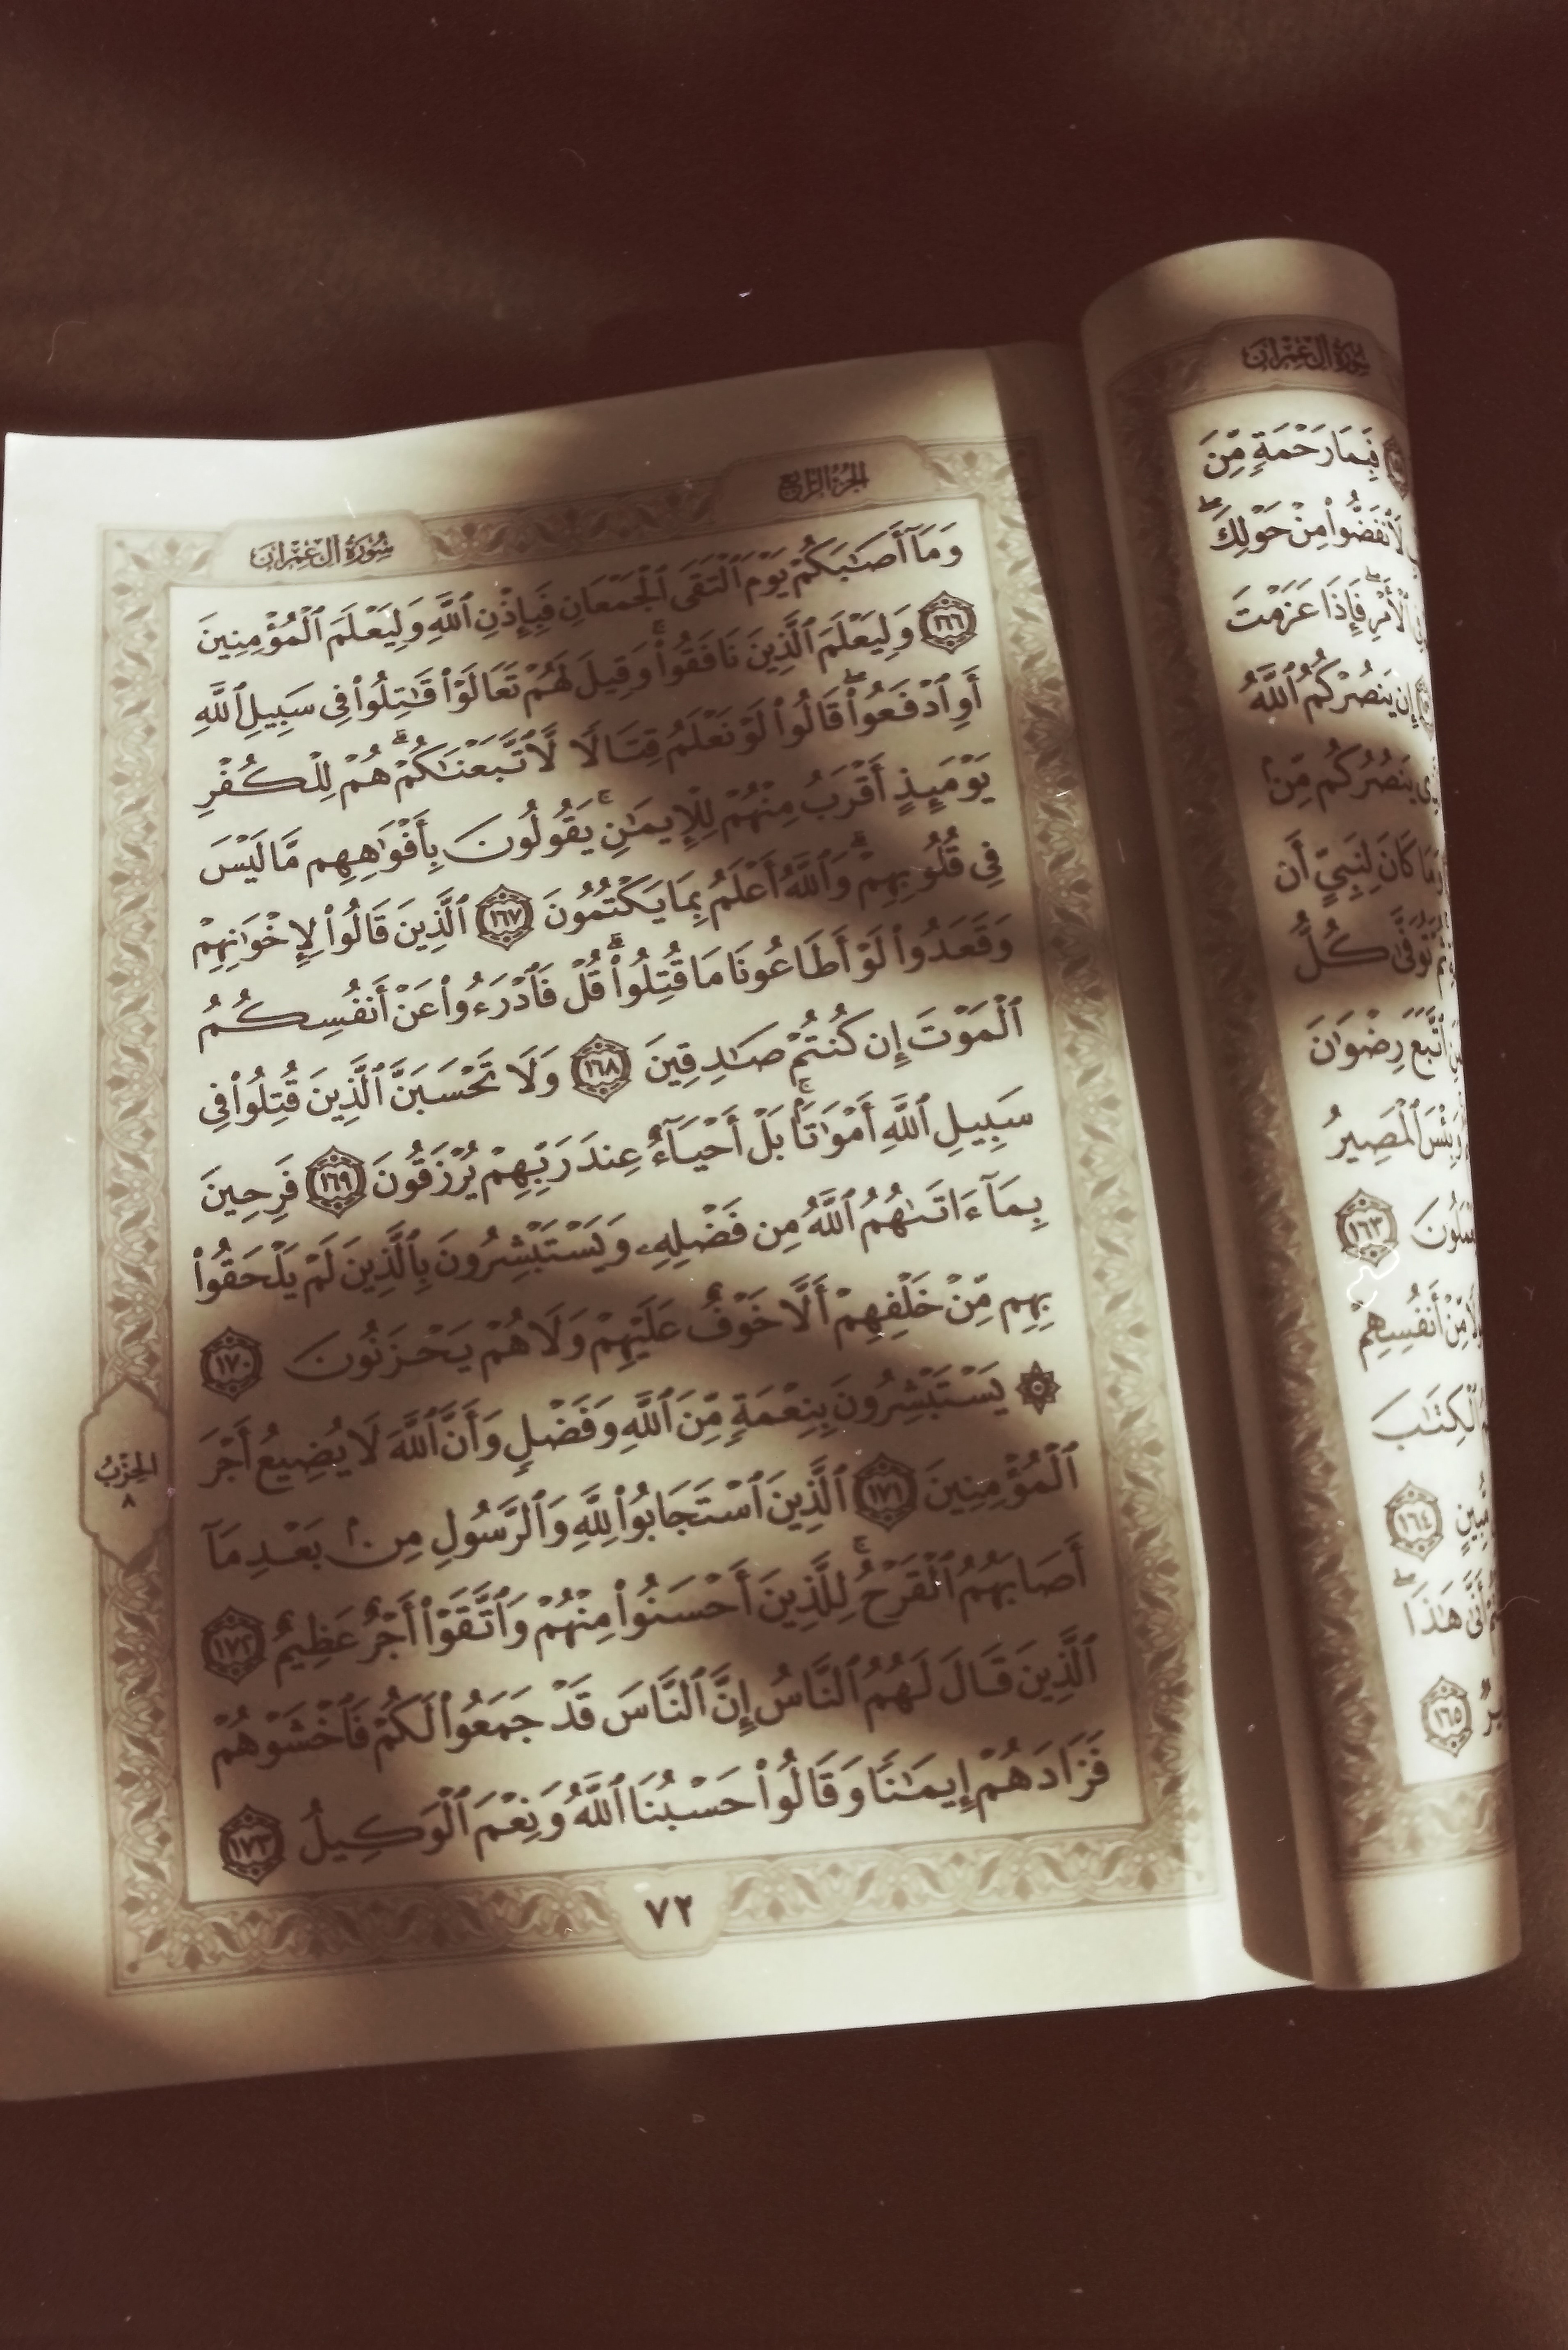 سُورَةُ آلِ عِمْرَانَ
فَبِمَا رَحْمَةٍ مِّنَ
لَٱنفَضُّوا۟ مِنْ حَوْلِكَ ۖ
ٱلْأَمْرِ ۖ فَإِذَا عَزَمْتَ
إِن يَنصُرْكُمُ ٱللَّهُ
يَنصُرُكُم مِّنۢ
وَمَا كَانَ لِنَبِىٍّ أَن
تُوَفَّىٰ كُلُّ
ٱتَّبَعَ رِضْوَٰنَ
وَبِئْسَ ٱلْمَصِيرُ
١٦٣
مِّنْ أَنفُسِهِمْ
ٱلْكِتَٰبَ
مُّبِينٍ ١٦٤
أَنَّىٰ هَٰذَا ۖ
١٦٥
الجُزْءُ الرَّابِعُ
سُورَةُ آلِ عِمْرَانَ
وَمَآ أَصَٰبَكُمْ يَوْمَ ٱلْتَقَى ٱلْجَمْعَانِ فَبِإِذْنِ ٱللَّهِ وَلِيَعْلَمَ ٱلْمُؤْمِنِينَ
١٦٦ وَلِيَعْلَمَ ٱلَّذِينَ نَافَقُوا۟ ۚ وَقِيلَ لَهُمْ تَعَالَوْا۟ قَٰتِلُوا۟ فِى سَبِيلِ ٱللَّهِ
أَوِ ٱدْفَعُوا۟ ۖ قَالُوا۟ لَوْ نَعْلَمُ قِتَالًا لَّٱتَّبَعْنَٰكُمْ ۗ هُمْ لِلْكُفْرِ
يَوْمَئِذٍ أَقْرَبُ مِنْهُمْ لِلْإِيمَٰنِ ۚ يَقُولُونَ بِأَفْوَٰهِهِم مَّا لَيْسَ
فِى قُلُوبِهِمْ ۗ وَٱللَّهُ أَعْلَمُ بِمَا يَكْتُمُونَ ١٦٧ ٱلَّذِينَ قَالُوا۟ لِإِخْوَٰنِهِمْ
وَقَعَدُوا۟ لَوْ أَطَاعُونَا مَا قُتِلُوا۟ ۗ قُلْ فَٱدْرَءُوا۟ عَنْ أَنفُسِكُمُ
ٱلْمَوْتَ إِن كُنتُمْ صَٰدِقِينَ ١٦٨ وَلَا تَحْسَبَنَّ ٱلَّذِينَ قُتِلُوا۟ فِى
سَبِيلِ ٱللَّهِ أَمْوَٰتًۢا ۚ بَلْ أَحْيَآءٌ عِندَ رَبِّهِمْ يُرْزَقُونَ ١٦٩ فَرِحِينَ
بِمَآ ءَاتَىٰهُمُ ٱللَّهُ مِن فَضْلِهِۦ وَيَسْتَبْشِرُونَ بِٱلَّذِينَ لَمْ يَلْحَقُوا۟
بِهِم مِّنْ خَلْفِهِمْ أَلَّا خَوْفٌ عَلَيْهِمْ وَلَا هُمْ يَحْزَنُونَ ١٧٠
۞ يَسْتَبْشِرُونَ بِنِعْمَةٍ مِّنَ ٱللَّهِ وَفَضْلٍ وَأَنَّ ٱللَّهَ لَا يُضِيعُ أَجْرَ
ٱلْمُؤْمِنِينَ ١٧١ ٱلَّذِينَ ٱسْتَجَابُوا۟ لِلَّهِ وَٱلرَّسُولِ مِنۢ بَعْدِ مَآ
أَصَابَهُمُ ٱلْقَرْحُ ۚ لِلَّذِينَ أَحْسَنُوا۟ مِنْهُمْ وَٱتَّقَوْا۟ أَجْرٌ عَظِيمٌ ١٧٢
ٱلَّذِينَ قَالَ لَهُمُ ٱلنَّاسُ إِنَّ ٱلنَّاسَ قَدْ جَمَعُوا۟ لَكُمْ فَٱخْشَوْهُمْ
فَزَادَهُمْ إِيمَٰنًا وَقَالُوا۟ حَسْبُنَا ٱللَّهُ وَنِعْمَ ٱلْوَكِيلُ ١٧٣
الحِزْبُ
٨
٧٢